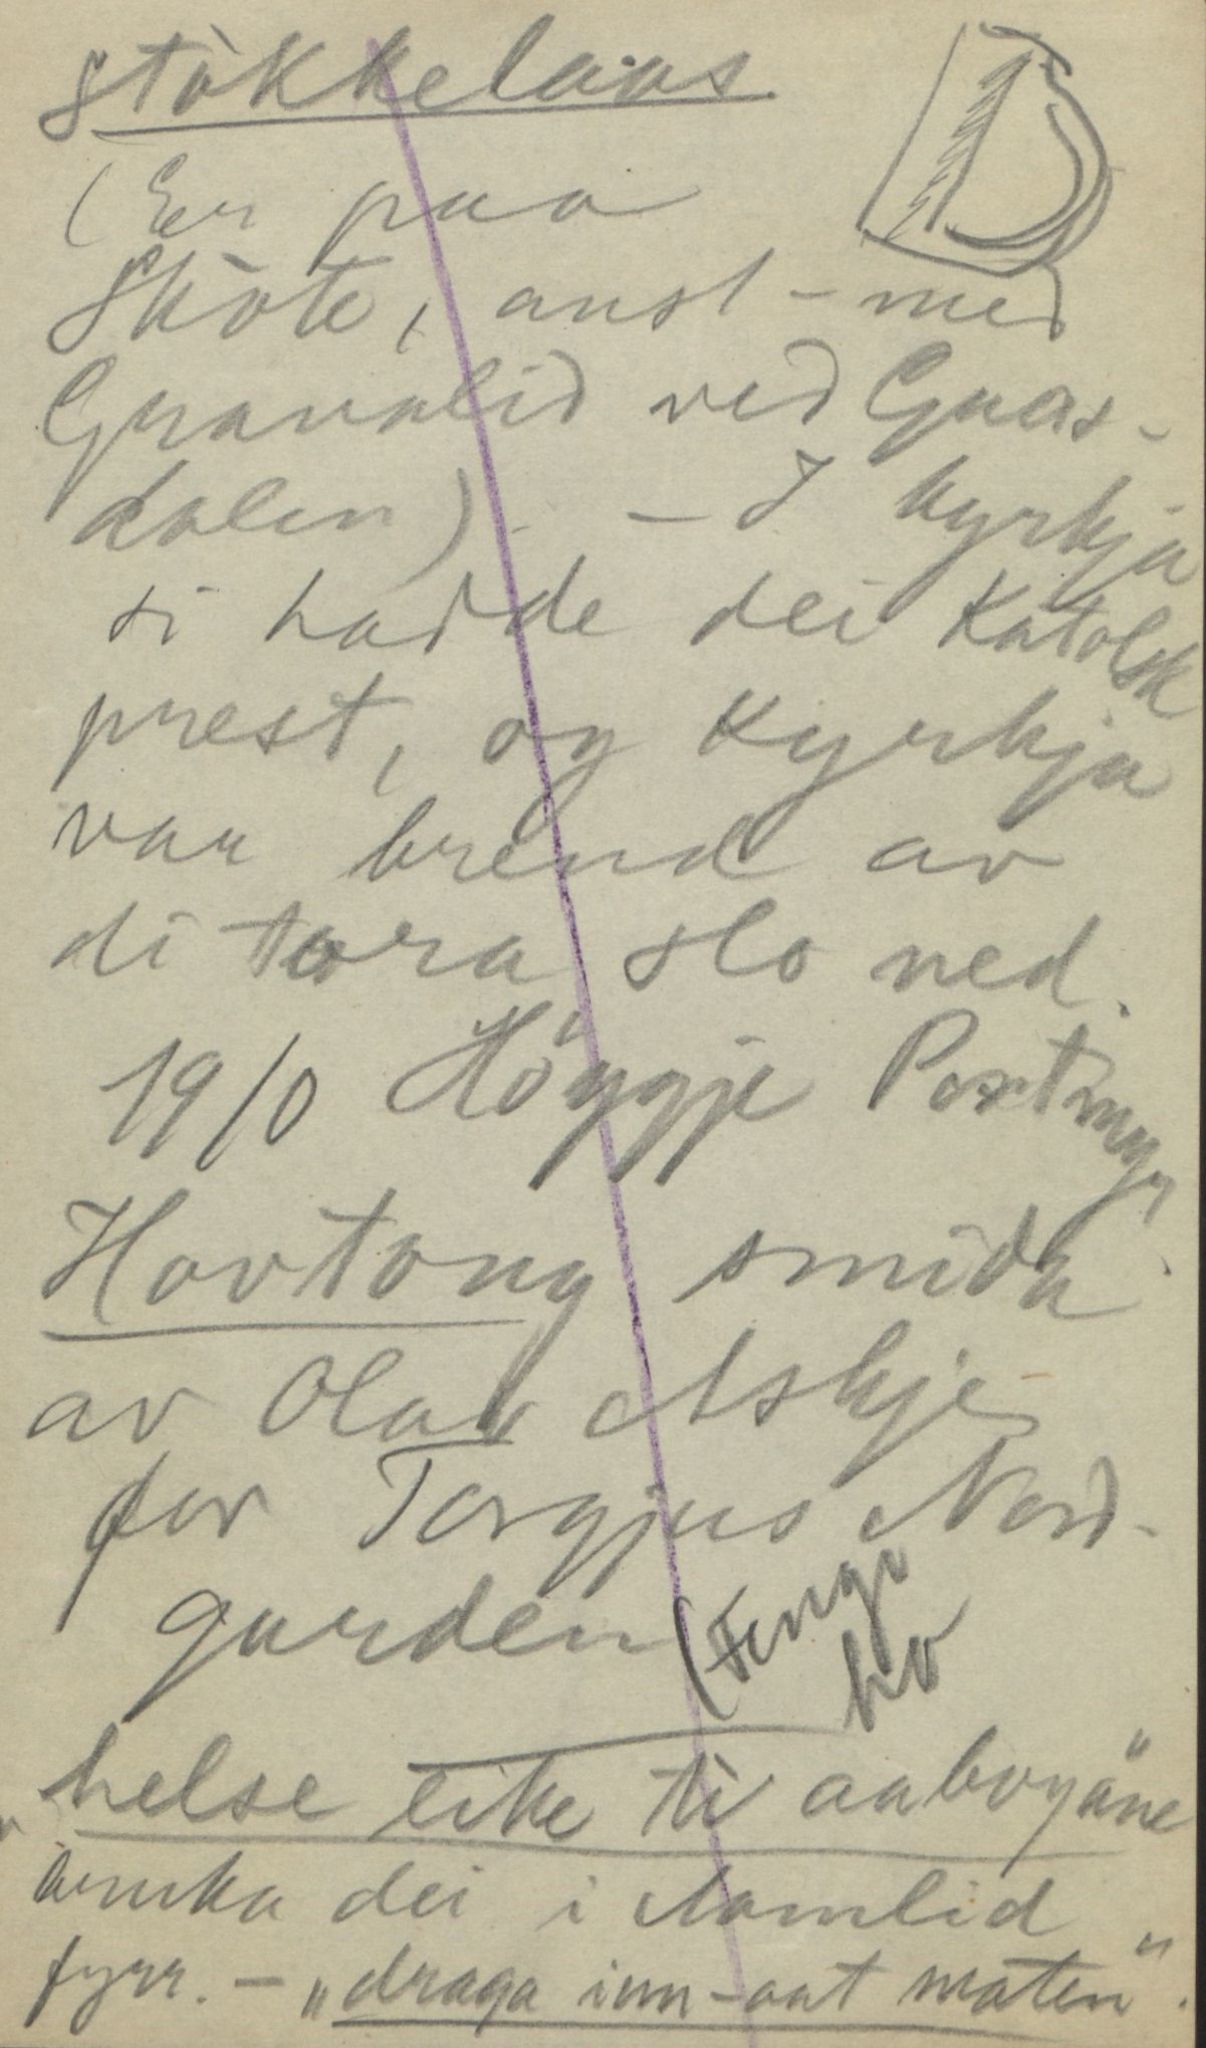 Stokkelaas
(Er paa
Skòte, aust-med
Granalid ved Gaas-
dalen). - I kyrkja
si hadde dei Katolsk
prest, og kyrkja
var brend av
di tora slo ned.
19/10 Höggje Postmyr
Hovtong smida
av Olav Askje
for Torgjus Nord-
garden (
"helse like ti aaboyäne"
bruka dei i Aamlid
fyrr. - "draga inn-aat maten".